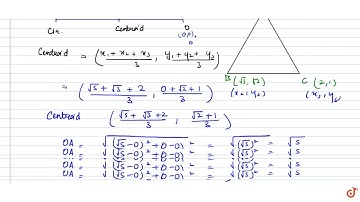 Cir. Centroid O
(0,0)
Centroid = (x₁ + x₂ + x₃ / 3 , y₁ + y₂ + y₃ / 3)
B (√3, √2) C (2,1)
(x₂, y₂) (x₃, y₃)
= (√5 + √3 + 2 / 3 , 0 + √2 + 1 / 3)
Centroid (√5 + √3 + 2 / 3 , √2 + 1 / 3)
OA = √(√5 - 0)² + (0 - 0)² = √(√5)² = √5
OA = √(√5 - 0)² + (0 - 0)² = √(√5)² = √5
OA = √(√5 - 0)² + (0 - 0)² = √(√5)² = √5
OA = √(√5 - 0)² + (0 - 0)² = √(√5)² = √5